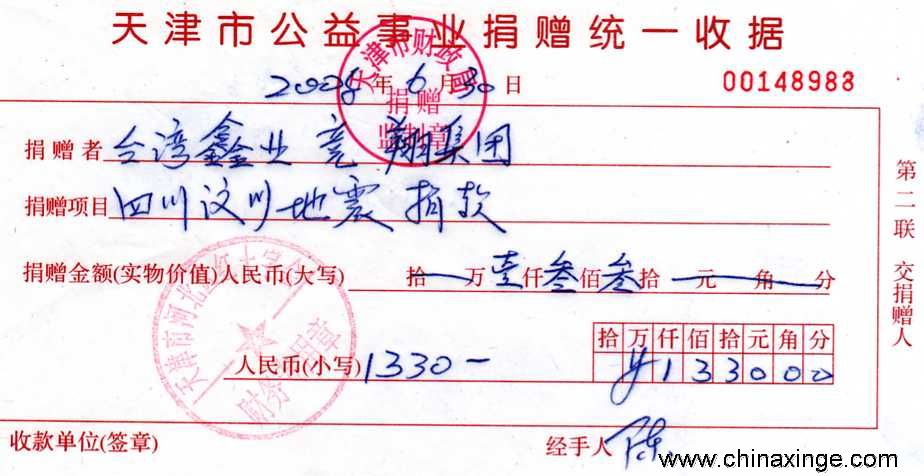 天津市公益事业捐赠统一收据
天津市财政局
捐赠
监制章
2008年6月30日
00148983
捐赠者 台湾鑫业竞翔集团
捐赠项目 四川汶川地震捐款
捐赠金额(实物价值)人民币(大写) 拾 万壹仟叁佰叁拾 元 角 分
天津市河北
财务专用章
拾万仟佰拾元角分
人民币(小写) 1330-
¥133000
收款单位(签章)
经手人 陈
第二联 交捐赠人
www.chinaxinge.com